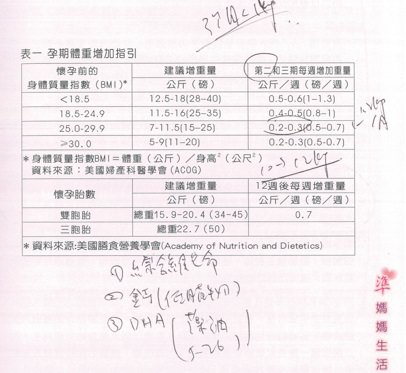 3個月<1kg
表一 孕期體重增加指引
懷孕前的身體質量指數 (BMI)* 建議增重量 公斤（磅） 第二和三期每週增加重量 公斤／週（磅／週）
<18.5 12.5-18(28-40) 0.5-0.6(1-1.3)
18.5-24.9 11.5-16(25-35) 0.4-0.5(0.8-1)
25.0-29.9 7-11.5(15-25) 0.2-0.3(0.5-0.7)
≥30.0 5-9(11-20) 0.2-0.3(0.5-0.7)
*身體質量指數BMI=體重（公斤）／身高²（公尺²）
資料來源：美國婦產科醫學會(ACOG)
10→12kg
懷孕胎數 建議增重量 公斤（磅） 12週後每週增重量 公斤／週（磅／週）
雙胞胎 總重15.9-20.4 (34-45) 0.7
三胞胎 總重22.7(50)
*資料來源:美國膳食營養學會(Academy of Nutrition and Dietetics)
①
② 鈣
③ DHA
藻油
準媽媽生活